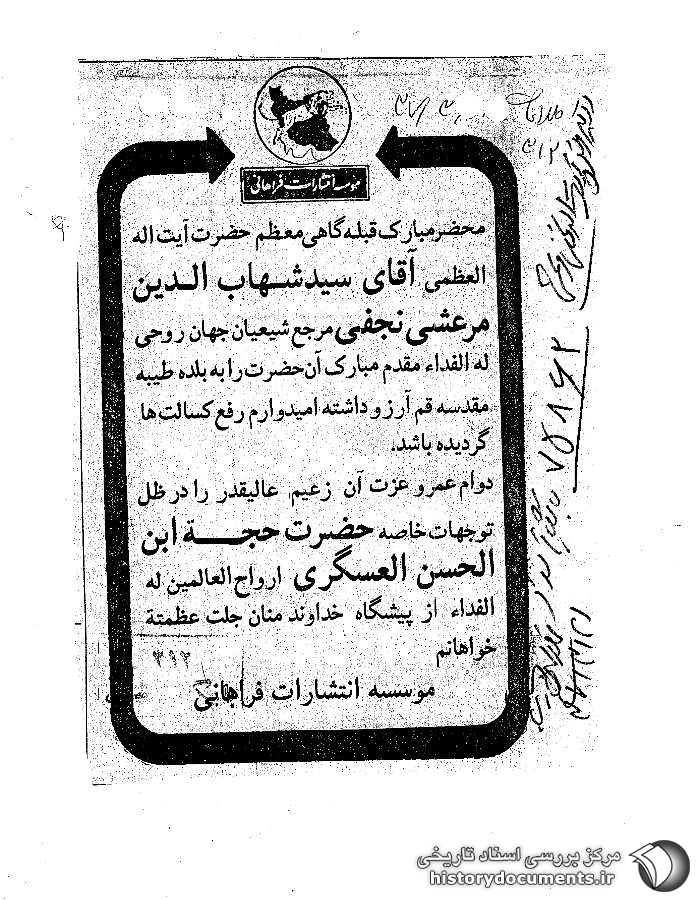 موسسه انتشارات فراهانی
اطلاعات
محضر مبارک قبله گاهی معظم حضرت آیت اله
العظمی آقای سید شهاب الدین
مرعشی نجفی مرجع شیعیان جهان روحی
له الفداء مقدم مبارک آن حضرت را به بلده طیبه
مقدسه قم آرزو داشته امیدوارم رفع کسالت ها
گردیده باشد.
دوام عمر و عزت آن زعیم عالیقدر را در ظل
توجهات خاصه حضرت حجة ابن
الحسن العسگری ارواح العالمین له
الفداء از پیشگاه خداوند منان جلت عظمتة
خواهانم
۳۹۲
موسسه انتشارات فراهانی
مرکز بررسی اسناد تاریخی
historydocuments.ir